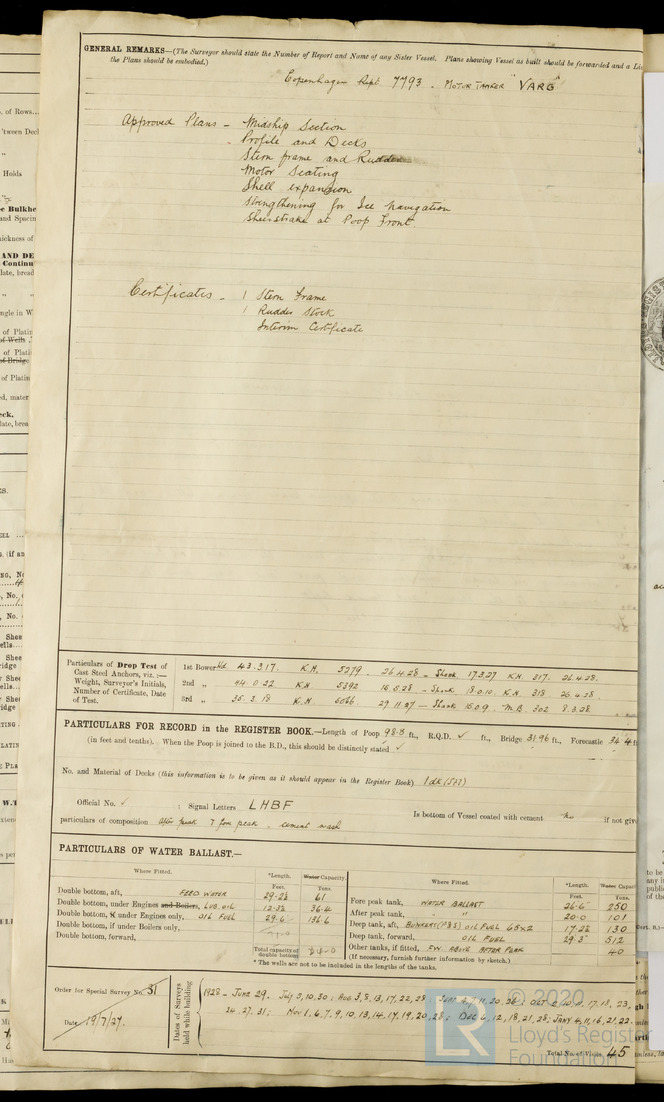 GENERAL REMARKS—(The Surveyor should state the Number of Report and Name of any Sister Vessel. Plans showing Vessel as built should be forwarded and a
the Plans should be embodied.)
Copenhagen Rept 7793 . MOTOR TANKER "VARG"
Approved Plans - Midship Section
Profile and Decks
Stern frame and Rudder
Motor Seating
Shell expansion
Strengthening for Ice navigation
Sheerstrake at Poop Front
Certificates - 1 Stern Frame
1 Rudder Stock
Interim Certificate
Particulars of Drop Test of
Cast Steel Anchors, viz. :—
Weight, Surveyor's Initials,
Number of Certificate, Date
of Test.
1st Bower 43.3.17. K.H. 5279 . 26.4.28 - Shank 17.3.27 K.H. 317. 26.4.28.
2nd „ 44.0.22 K.H 5292 - Shank 18.0.10. K.H. 318 26.4.28.
3rd „ 35.3.18 K.H. — Shank 15.0.9. M.B. 302 8.3.28
PARTICULARS FOR RECORD in the REGISTER BOOK.—Length of Poop 98.8 ft., R.Q.D. ✓ ft., Bridge 31.96 ft., Forecastle 34.4
(in feet and tenths). When the Poop is joined to the B.D., this should be distinctly stated ✓
No. and Material of Decks (this information is to be given as it should appear in the Register Book) 1 dk (Stl)
Official No. ✓ : Signal Letters LHBF Is bottom of Vessel coated with cement if not
particulars of composition After peak & fore peak - cement wash
PARTICULARS OF WATER BALLAST.—
Where Fitted. *Length. Water Capacity.
Feet. Tons.
Double bottom, aft, FEED WATER 29.28 61
Double bottom, under Engines and Boilers, LUB. OIL 12.22 36.4
Double bottom, if under Engines only, OIL FUEL 29.6 136.6
Double bottom, if under Boilers only,
Double bottom, forward,
Total capacity of
double bottom
Where Fitted. *Length. Water
Feet. Tons.
Fore peak tank, WATER BALLAST 26.6 250
After peak tank, " " 20.0 101
Deep tank, aft, BUNKERS (P&S) OIL FUEL 65x2 17.22 130
Deep tank, forward, OIL FUEL 29.3 512
Other tanks, if fitted, F.W. ABOVE AFTER PEAK 40
(If necessary, furnish further information by sketch.)
* The wells are not to be included in the lengths of the tanks.
Order for Special Survey No. 31
Date 19/7/27.
Dates of Surveys
held while building
1928 - JUNE 29. July 2, 10, 30; AUG 3, 8, 13, 17, 22, 28; OCT 2, 10, 11, 17, 18, 23,
24, 27, 31; NOV 1, 6, 7, 9, 10, 13, 14, 17, 19, 20, 28; DEC 6, 12, 18, 21, 28; JANY 4, 11, 16, 21, 22.
Total No. of Visits 45
© 2020
Lloyd's Register
Foundation
LR